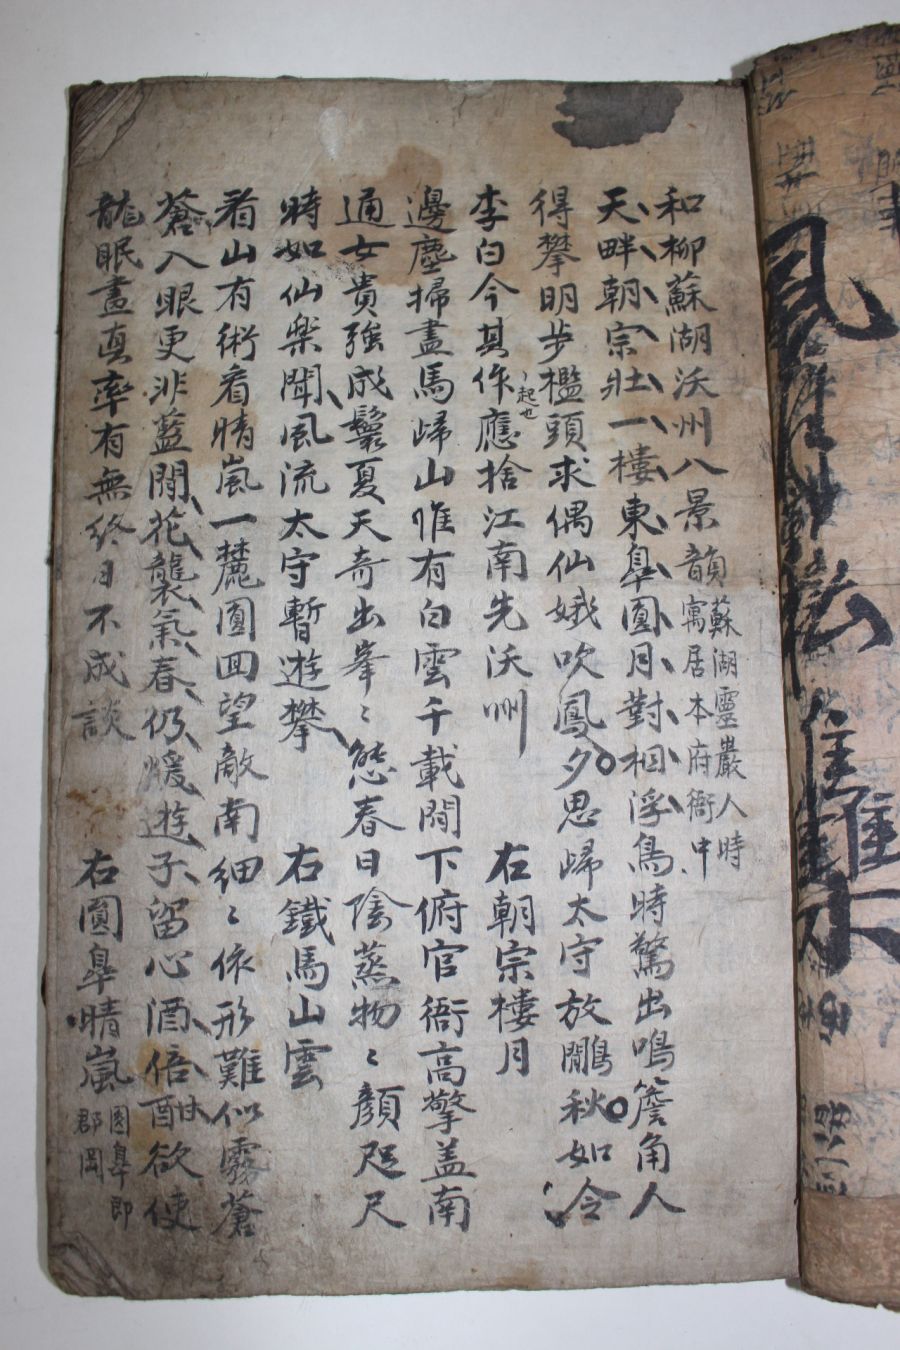 和柳蘇湖沃州八景韻
蘇湖靈巖人時
寓居本府衙中
天畔朝宗壯一樓東臯圓月對相浮鳥時驚出鳴簷角人
得攀明步檻頭求偶仙娥吹鳳夕思歸太守放鷳秋如令
李白今其作應捨江南先沃州
起也
右朝宗樓月
邊塵掃盡馬歸山惟有白雲千載閒下俯官衙高擎盖南
通女貴強成鬟夏天奇出峯〻態春日陰蒸物〻顔咫尺
時如仙樂聞風流太守暫遊攀
右鐵馬山雲
看山有術看晴嵐一麓圓回望敵南細〻依形難似霧蒼
蒼入眼更非藍閒花襲氣春仍煖遊子留心酒倍酣欲使
龍眠畫眞率有無終日不成談
右圓臯晴嵐
圓臯即
郡岡